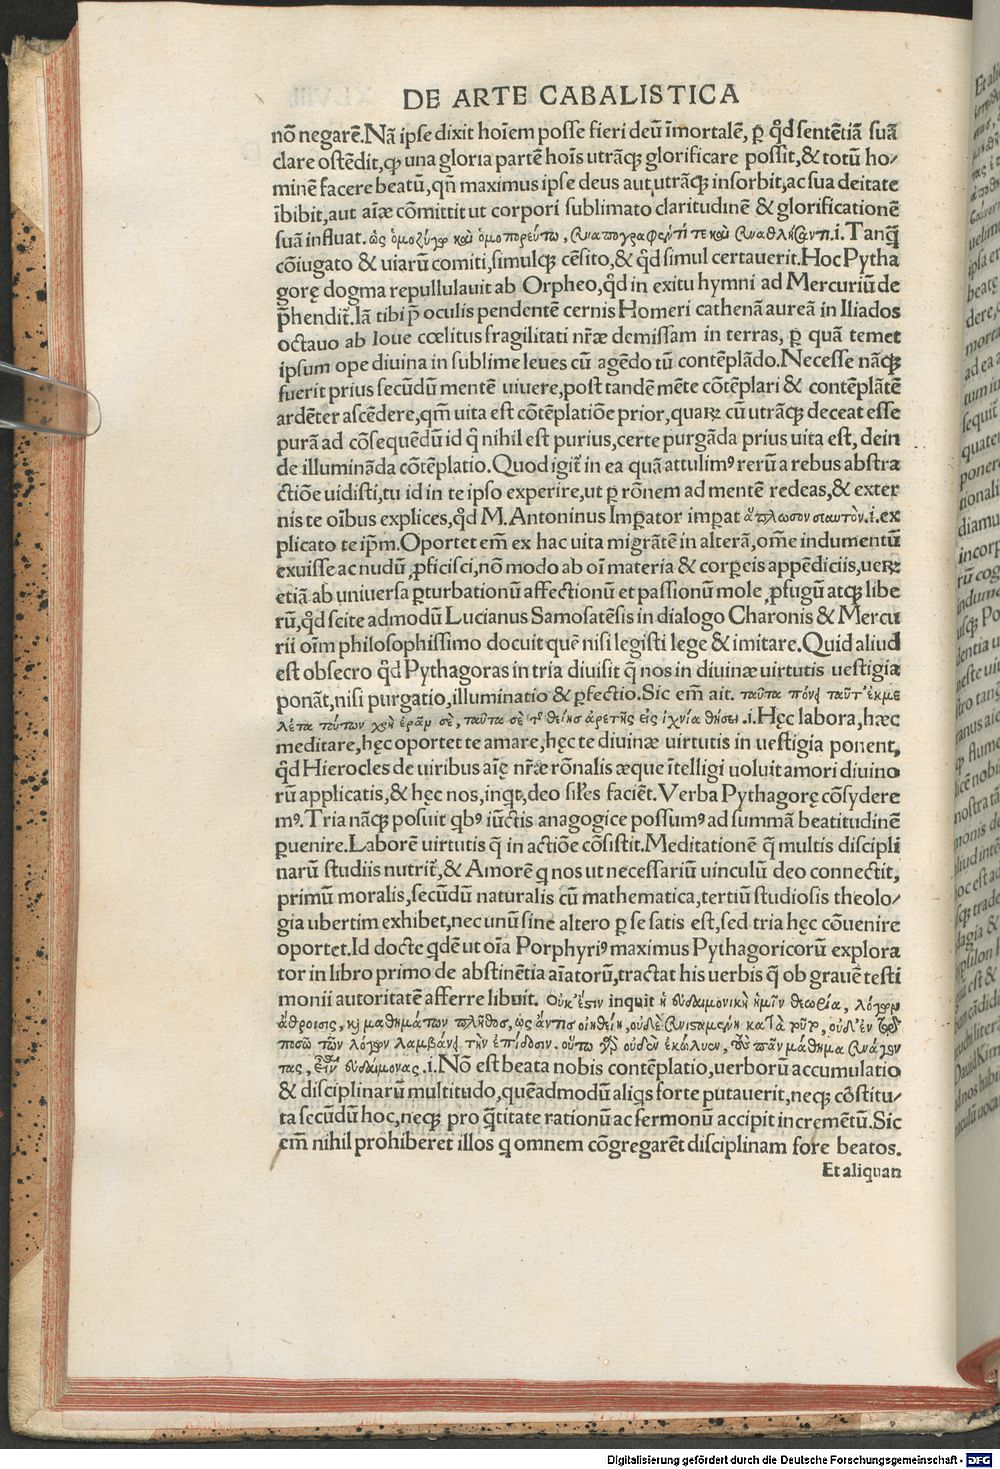 DE ARTE CABALISTICA
nō negarē. Nā ipse dixit hoīem posse fieri deū īmortalē, ꝑ qđ sentētiā suā
clare ostēdit, ꝙ una gloria partē hoīs utrāqꝫ glorificare possit, & totū ho/
minē facere beatū, qñ maximus ipse deus aut utrāqꝫ insorbit, ac sua deitate
ībibit, aut aīæ cōmittit ut corpori sublimato claritudinē & glorificationē
suā influat. ὡς ὁμοζύγῳ καὶ ὁμοπορεύτῳ, συναπογραφέντι τε καὶ συναθλήσαντι .i. Tanq̄
cōiugato & uiarū comiti, simulqꝫ cēsito, & qđ simul certauerit. Hoc Pytha
gorę dogma repullulauit ab Orpheo, qđ in exitu hymni ad Mercuriū de
p̄hendit̄. Iā tibi p̄ oculis pendentē cernis Homeri cathenā aureā in Iliados
octauo ab Ioue cœlitus fragilitati nr̄æ demissam in terras, ꝑ quā temet
ipsum ope diuina in sublime leues cū agēdo tū contēplādo. Necesse nāqꝫ
fuerit prius secūdū mentē uiuere, post tandē mēte cōtēplari & contēplātē
ardēter ascēdere, qm̄ uita est cōtēplatiōe prior, quaꝝ cū utrāqꝫ deceat esse
purā ad cōsequēdū id q̄ nihil est purius, certe purgāda prius uita est, dein
de illumināda cōtēplatio. Quod igit̄ in ea quā attulimꝰ rerū a rebus abstra
ctiōe uidisti, tu id in te ipso experire, ut ꝑ rōnem ad mentē redeas, & exter
nis te oībus explices, qđ M. Antoninus Imꝑator imꝑat ἅπλωσον σεαυτὸν .i. ex
plicato te ip̄m. Oportet em̄ ex hac uita migrātē in alterā, om̄e indumentū
exuisse ac nudū ꝓficisci, nō modo ab oī materia & corꝑeis appēdiciis, ueꝝ
etiā ab uniuersa ꝑturbationū affectionū et passionū mole ꝓfugū atqꝫ libe
rū, qđ scite admodū Lucianus Samosatēsis in dialogo Charonis & Mercu
rii oīm philosophissimo docuit quē nisi legisti lege & imitare. Quid aliud
est obsecro qđ Pythagoras in tria diuisit q̄ nos in diuinæ uirtutis uestigia
ponāt, nisi purgatio, illuminatio & ꝑfectio. Sic em̄ ait. ταῦτα πόνει ταῦτ' ἐκμε
λέτα τούτων χρὴ ἐρᾶν σὲ, ταῦτα σὲ τῆς θείης ἀρετῆς εἰς ἰχνία θήσει .i. Hęc labora, hæc
meditare, hęc oportet te amare, hęc te diuinæ uirtutis in uestigia ponent,
qđ Hierocles de uiribus aīę nr̄æ rōnalis æque ītelligi uoluit amori diuino
rū applicatis, & hęc nos, inqt, deo sil̄es faciēt. Verba Pythagorę cōsydere
mꝰ. Tria nāqꝫ posuit qbꝰ iūctis anagogice possumꝰ ad summā beatitudinē
ꝑuenire. Laborē uirtutis q̄ in actiōe cōsistit. Meditationē q̄ multis discipli
narū studiis nutrit̄, & Amorē q nos ut necessariū uinculū deo connectit,
primū moralis, secūdū naturalis cū mathematica, tertiū studiosis theolo/
gia ubertim exhibet, nec unū sine altero ꝑ se satis est, sed tria hęc cōuenire
oportet. Id docte qdē ut oīa Porphyriꝰ maximus Pythagoricorū explora
tor in libro primo de abstinētia aīatorū, tractat his uerbis q̄ ob grauē testi
monii autoritatē afferre libuit. Οὐκ ἔστιν inquit ἡ εὐδαιμονικὴ ἡμῖν θεωρία, λόγων
ἄθροισις, κ̀ μαθημάτων πλῆθος, ὡς ἄντις οἰηθείη, οὐδὲ συνίστηται κατὰ τοῦτο, οὐδ' ἐν τῷ
ποσῷ τῶν λόγων λαμβάνει τὴν ἐπίδοσιν. οὕτω γὰρ οὐδὲν ἐκώλυεν, τοὺς πᾶν μάθημα συνάγον
τας, εἶναι εὐδαίμονας .i. Nō est beata nobis contēplatio, uerborū accumulatio
& disciplinarū multitudo, quēadmodū aliqs forte putauerit, neqꝫ cōstitu/
ta secūdū hoc, neqꝫ pro q̄titate rationū ac sermonū accipit incremētū. Sic
em̄ nihil prohiberet illos q omnem cōgregarēt disciplinam fore beatos.
Et aliquan
Digitalisierung gefördert durch die Deutsche Forschungsgemeinschaft - DFG